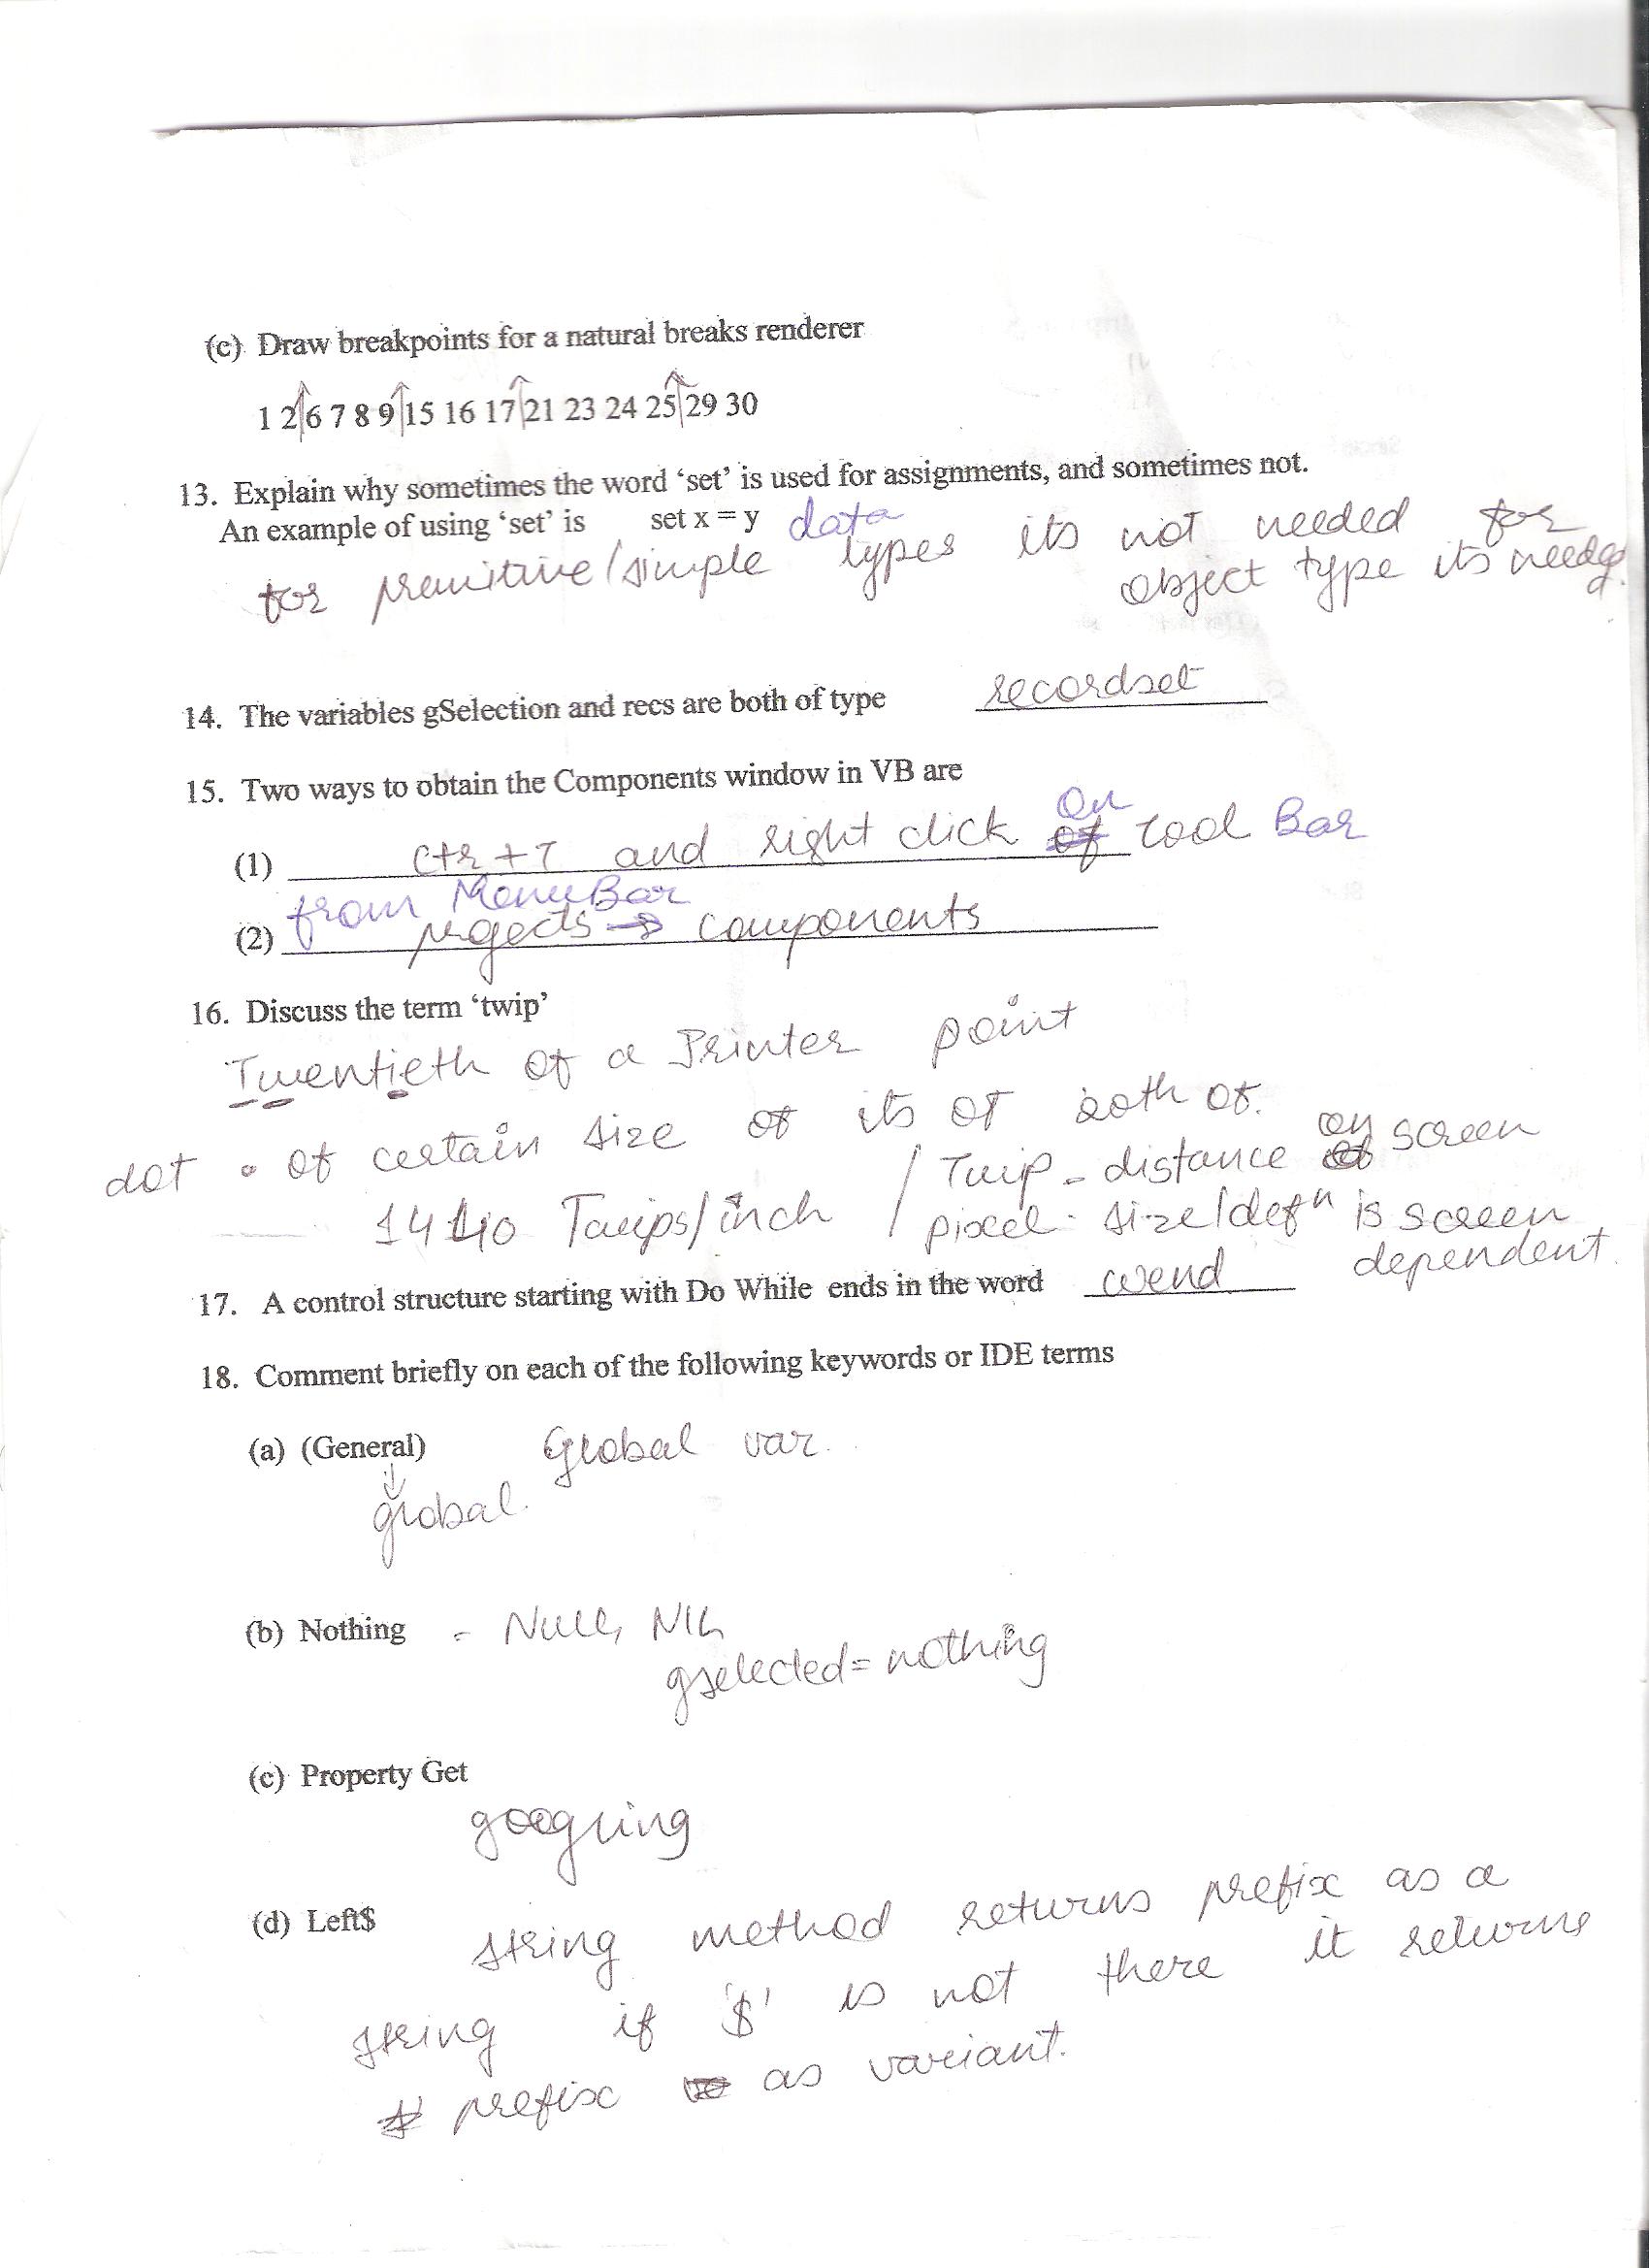 (c) Draw breakpoints for a natural breaks renderer
1 2 6 7 8 9 15 16 17 21 23 24 25 29 30
13. Explain why sometimes the word ‘set’ is used for assignments, and sometimes not.
An example of using ‘set’ is set x = y data
for primitive/simple types its not needed for
object type its needed.
14. The variables gSelection and recs are both of type recordset
15. Two ways to obtain the Components window in VB are
On
(1) Ctr + T and right click of tool Bar
from MenuBar
(2) projects → components
16. Discuss the term ‘twip’
Twentieth of a Printer point
dot • of certain size of its of 20th of.
1440 Twips/inch / Twip - distance on screen
pixel - size/defn is screen
dependent.
17. A control structure starting with Do While ends in the word wend
18. Comment briefly on each of the following keywords or IDE terms
(a) (General) Global var.
↓
global.
(b) Nothing - Null, NIL
gselected = nothing
(c) Property Get
(d) Left$ string method returns prefix as a
string if '$' is not there it returns
prefix as variant.